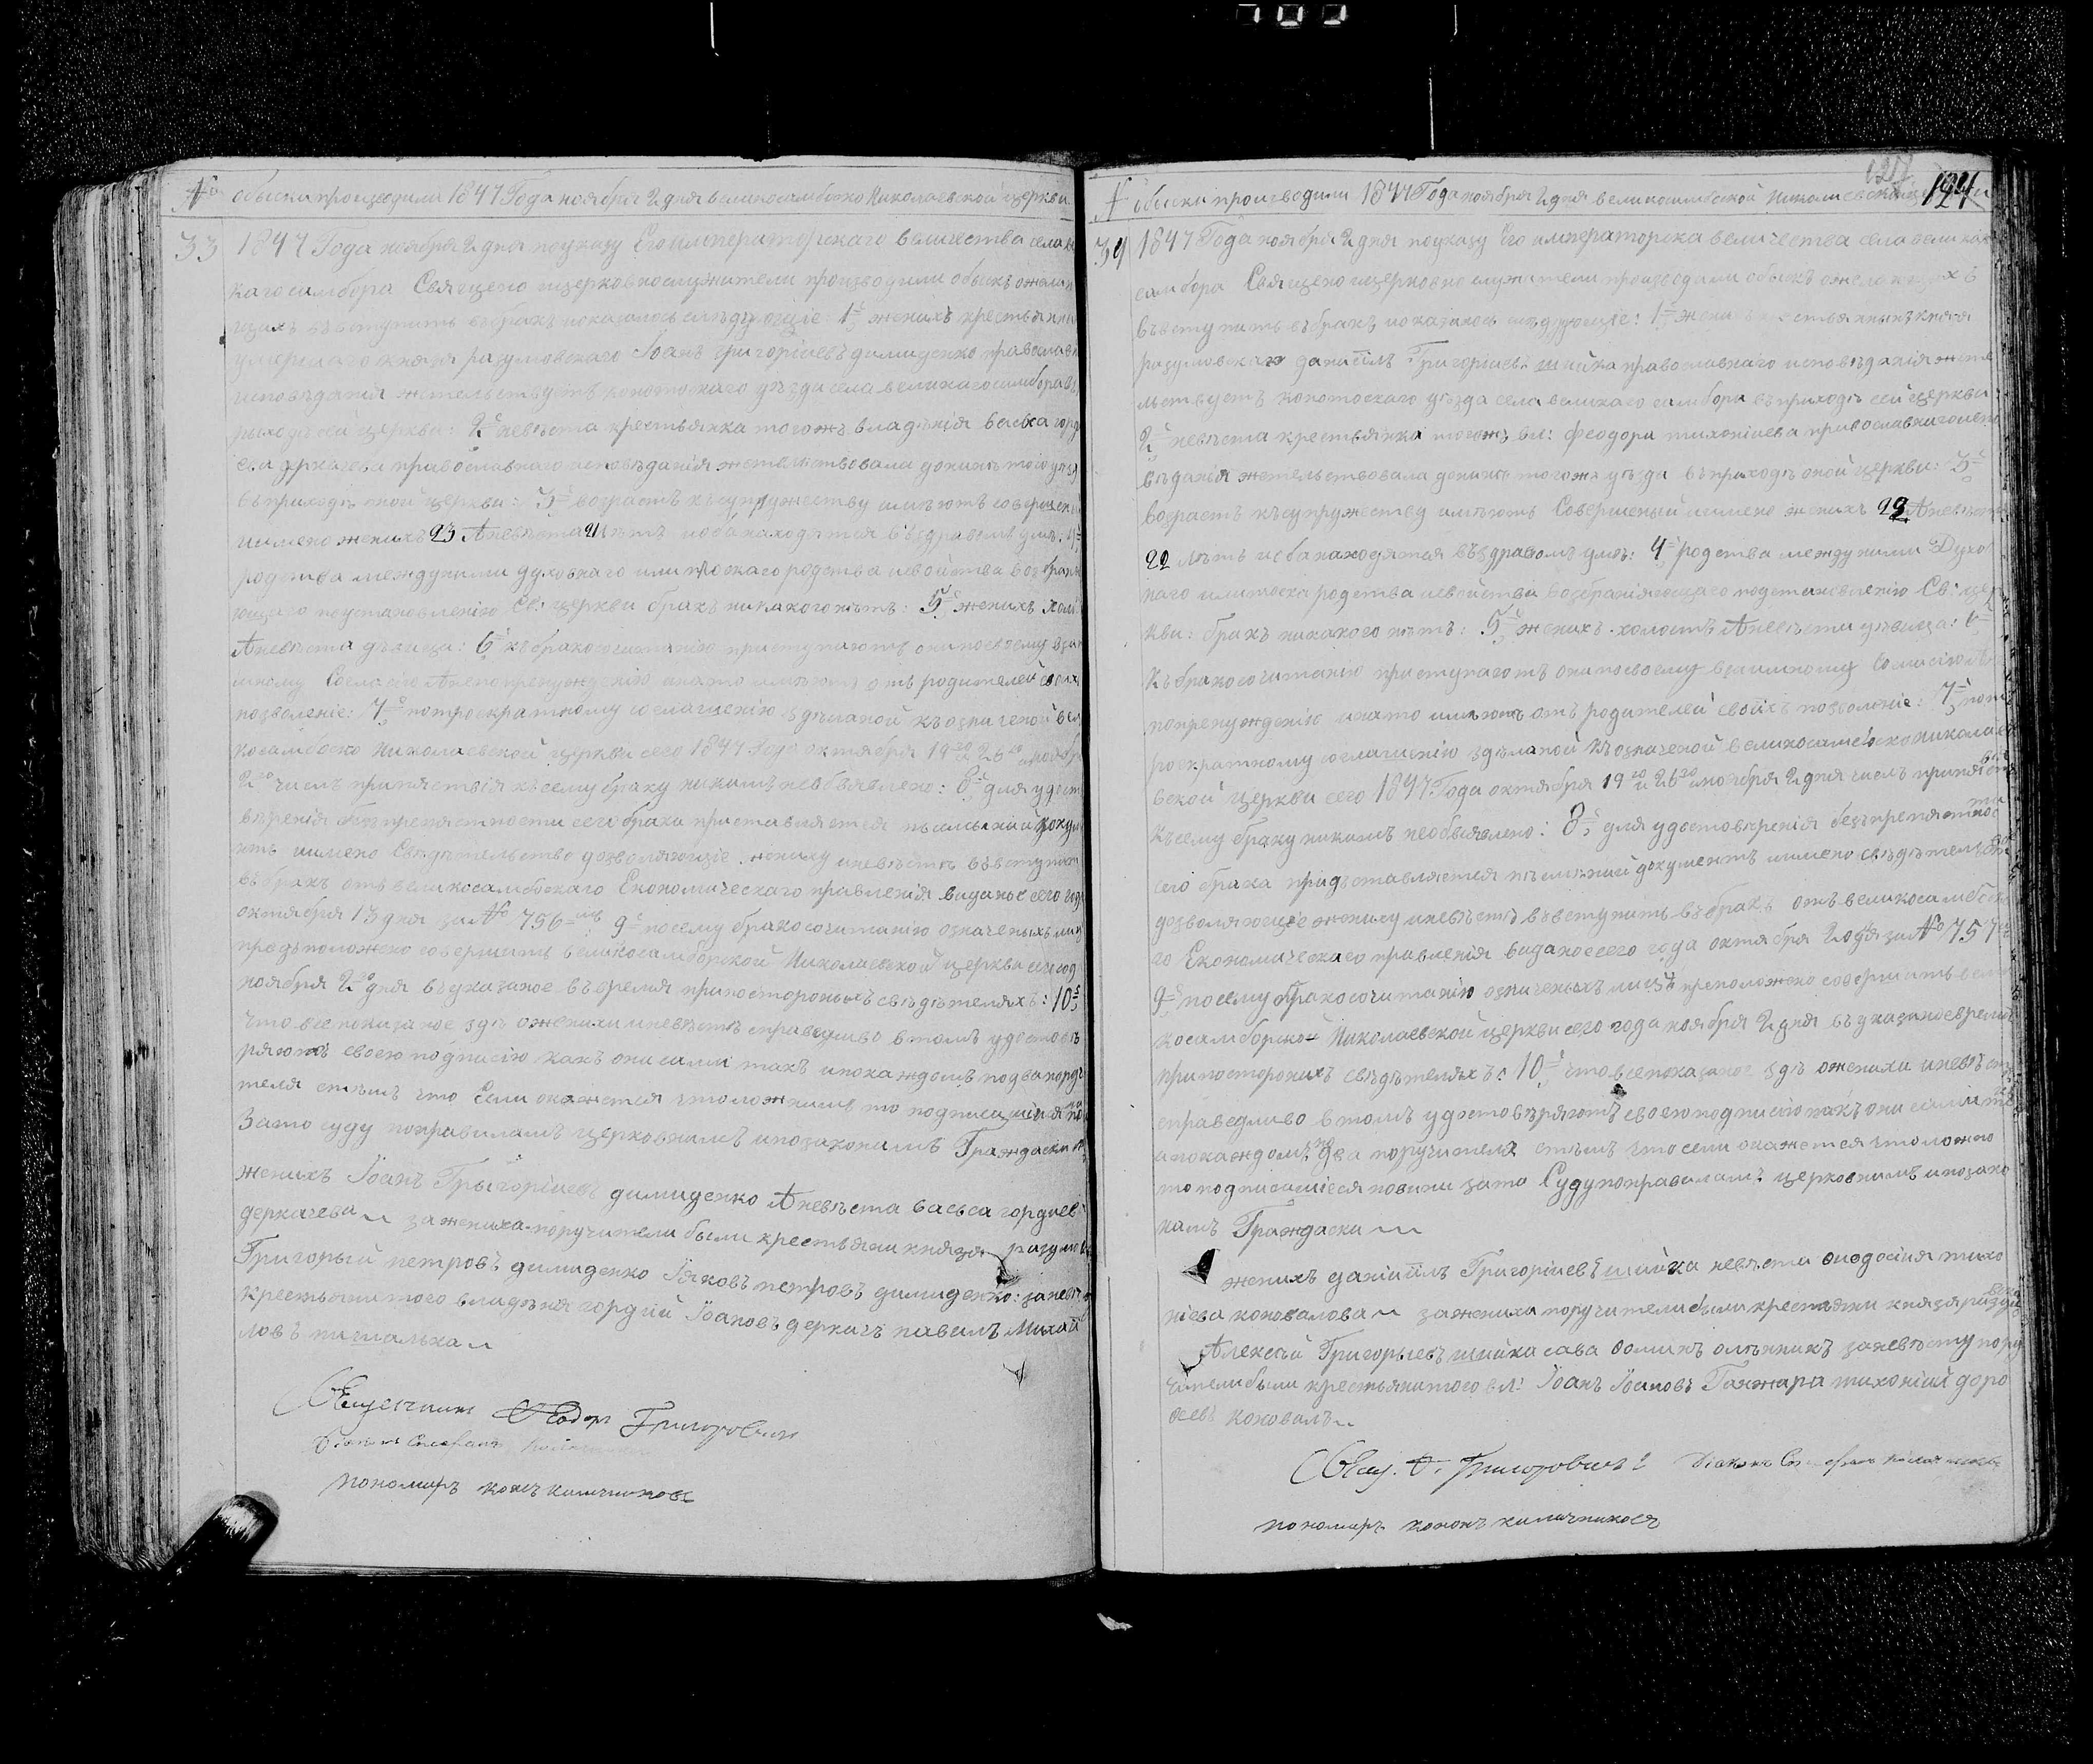 № обыски производили 1847 Года ноября 2 дня великосамбоско Николаевской церкви
33 1847 Года ноября 2 дня поуказу Его императорскаго величества села
каго самбора Священо ицерковнослужители производили обыскъ ожела
щихъ въвступить въбракъ иоказалось следующие: 1е женихъ крестьянин
умершаго князя разумовскаго Іоанъ григоріевъ димиденко православ
исповеданія жительствуетъ конотоскаго уезда села великаго самбора въ
рыходе сей церкви: 2е невеста крестьянка тогожъ владенія васьса горд
ева деркачева православнаго исповеданія жительствовала донине того уезд
въприходе оной церкви: 3е возрастъ къ супружеству имеютъ совершен
иимено женихъ 23 А невеста 21 летъ иоба находятся въ здравомъ уме. 4е
родства между ними духовнаго или плоскаго родства исвойства возбран
ющаго поустановленію Св: церкви бракъ никакого нетъ: 5е женихъ холо
А невеста девица: 6е къбракосочитанію приступаютъ они посвоему взаи
мному Согласию Анепопренуждению инато имеютъ отъ родителей своих
позволеніе: 7е потроекратному оглашению зделаной къозначеной вели
косамбоско Николаевской церкви сего 1847 Года октября 19го 26го ноября
2го числъ припяствія ксему браку никимъ необъявлено: 8е для удост
веренія безпрепястности сего брака приставляется письмений докуме
нтъ иимено Сведетельство дозволяющіе жениху иневесте въвступить
въбракъ отъ великосамбоскаго Економическаго правленія виданое сего года
октября 13 дня за № 756 мъ 9е посему бракосочитанію означеныхъ лиц
предположено совершить великосамборской Николаевской церкви сего год
ноября 2го дня въуказаное въвремя припосторонныхъ сведетеляхъ: 10е
что все показаное зде ожениху иневесте справедливо втомъ удостове
ряютъ своею подписію какъ они сами такъ ипокаждомъ подва поруч
теля стемъ что Если окажется чтоложнимъ то подписавшіися
Зато суду поправиламъ церковнимъ ипозаконамъ Граждаски
женихъ Іоанъ Грыгоріевъ димиденко Аневеста васьса гордиев
деркачева за жениха поручители были крестьяни князя разумо
Григорый петровъ димиденко Іяковъ петровъ димиденко: заневе
крестьяни того владеня гордий Іоановъ деркачъ павилъ Михай
ловъ
Священникъ Феодоръ Григоровичъ
пономарь
127
124
№ обиски производили 1847 Года ноября 2 дня великосамбоской Николаевской
34 1847 Года ноября 2 дня поуказу Его императорска величества села велика
самбора Священо ицерковно служители производили обыскъ ожелающихъ
въвступить въбракъ иоказалось следующіе: 1е женихъ крестьянинъ князя
разумовскаго данііилъ Григоріевъ шийка православнаго исповеданія жите
льствуетъ конотоскаго уезда села великаго самбора въприходе сей церкви:
2е невеста крестьянка тогожъ вл: феодора тихоніева православнаго испо
веданія жительствовала донине тогожъ уезда въприходе оной церкви: 3е
возрастъ къ супружеству имеютъ Совершеный иимено женихъ 22 А невеста
22 летъ иоба находятся въздравомъ уме: 4е родства между ними Духов
наго или плоска родства исвойства возбраняющаго поустановленію Св: цер
кви: бракъ никакого нетъ: 5е женихъ холостъ А невеста девица: 6е
Къбракосочитанію приступаютъ они посвоему взаимному Согласію
попренужденію инато имеютъ отъ родителей своихъ позволеніе: 7е пот
роекратному оглашению зделаной къозначеной великосамбоско николае
вской церкви сего 1847 Года октября 19го и 26го ноября 2 дня числъ припяствія
къ сему браку никимъ необъявлено: 8е для удостоверенія безпрепятност
сего брака придставляется письменний документъ иимено сведетельство
дозволяющіе жениху иневесте въвступить въбракъ отъ великосамбоска
го Економическаго правленія виданое сего года октября 20 дня за № 757
9е посему бракосочитанію означеныхъ лицъ преположено совершить вели
косамборской Николаевской церкви сего года ноября 2 дня въуказаное время
припосторонихъ сведетеляхъ: 10е что все показаное зде ожениху иневесте
справедливо втомъ удостоверяютъ своею подписію какъ они сами
ипокаждомъ подва поручителя стемъ что если окажется чтоложно
то подписавшіеся повини зато Суду поправиламъ церковнимъ ипозако
намъ Граждаски
женихъ даніиилъ Григоріевъ шийка невеста феодосия тихо
ніева коновалова зажениха поручители были крестьяни князя разумо
Алексей Григорьевъ шийка сава фоминъ олейникъ заневесту пору
чители были крестьяни того вл: Іоанъ Іоановъ Ганжара тихоний доро
феевъ коновалъ
Свящ. Ф. Григоровичъ
пономарь кононъ